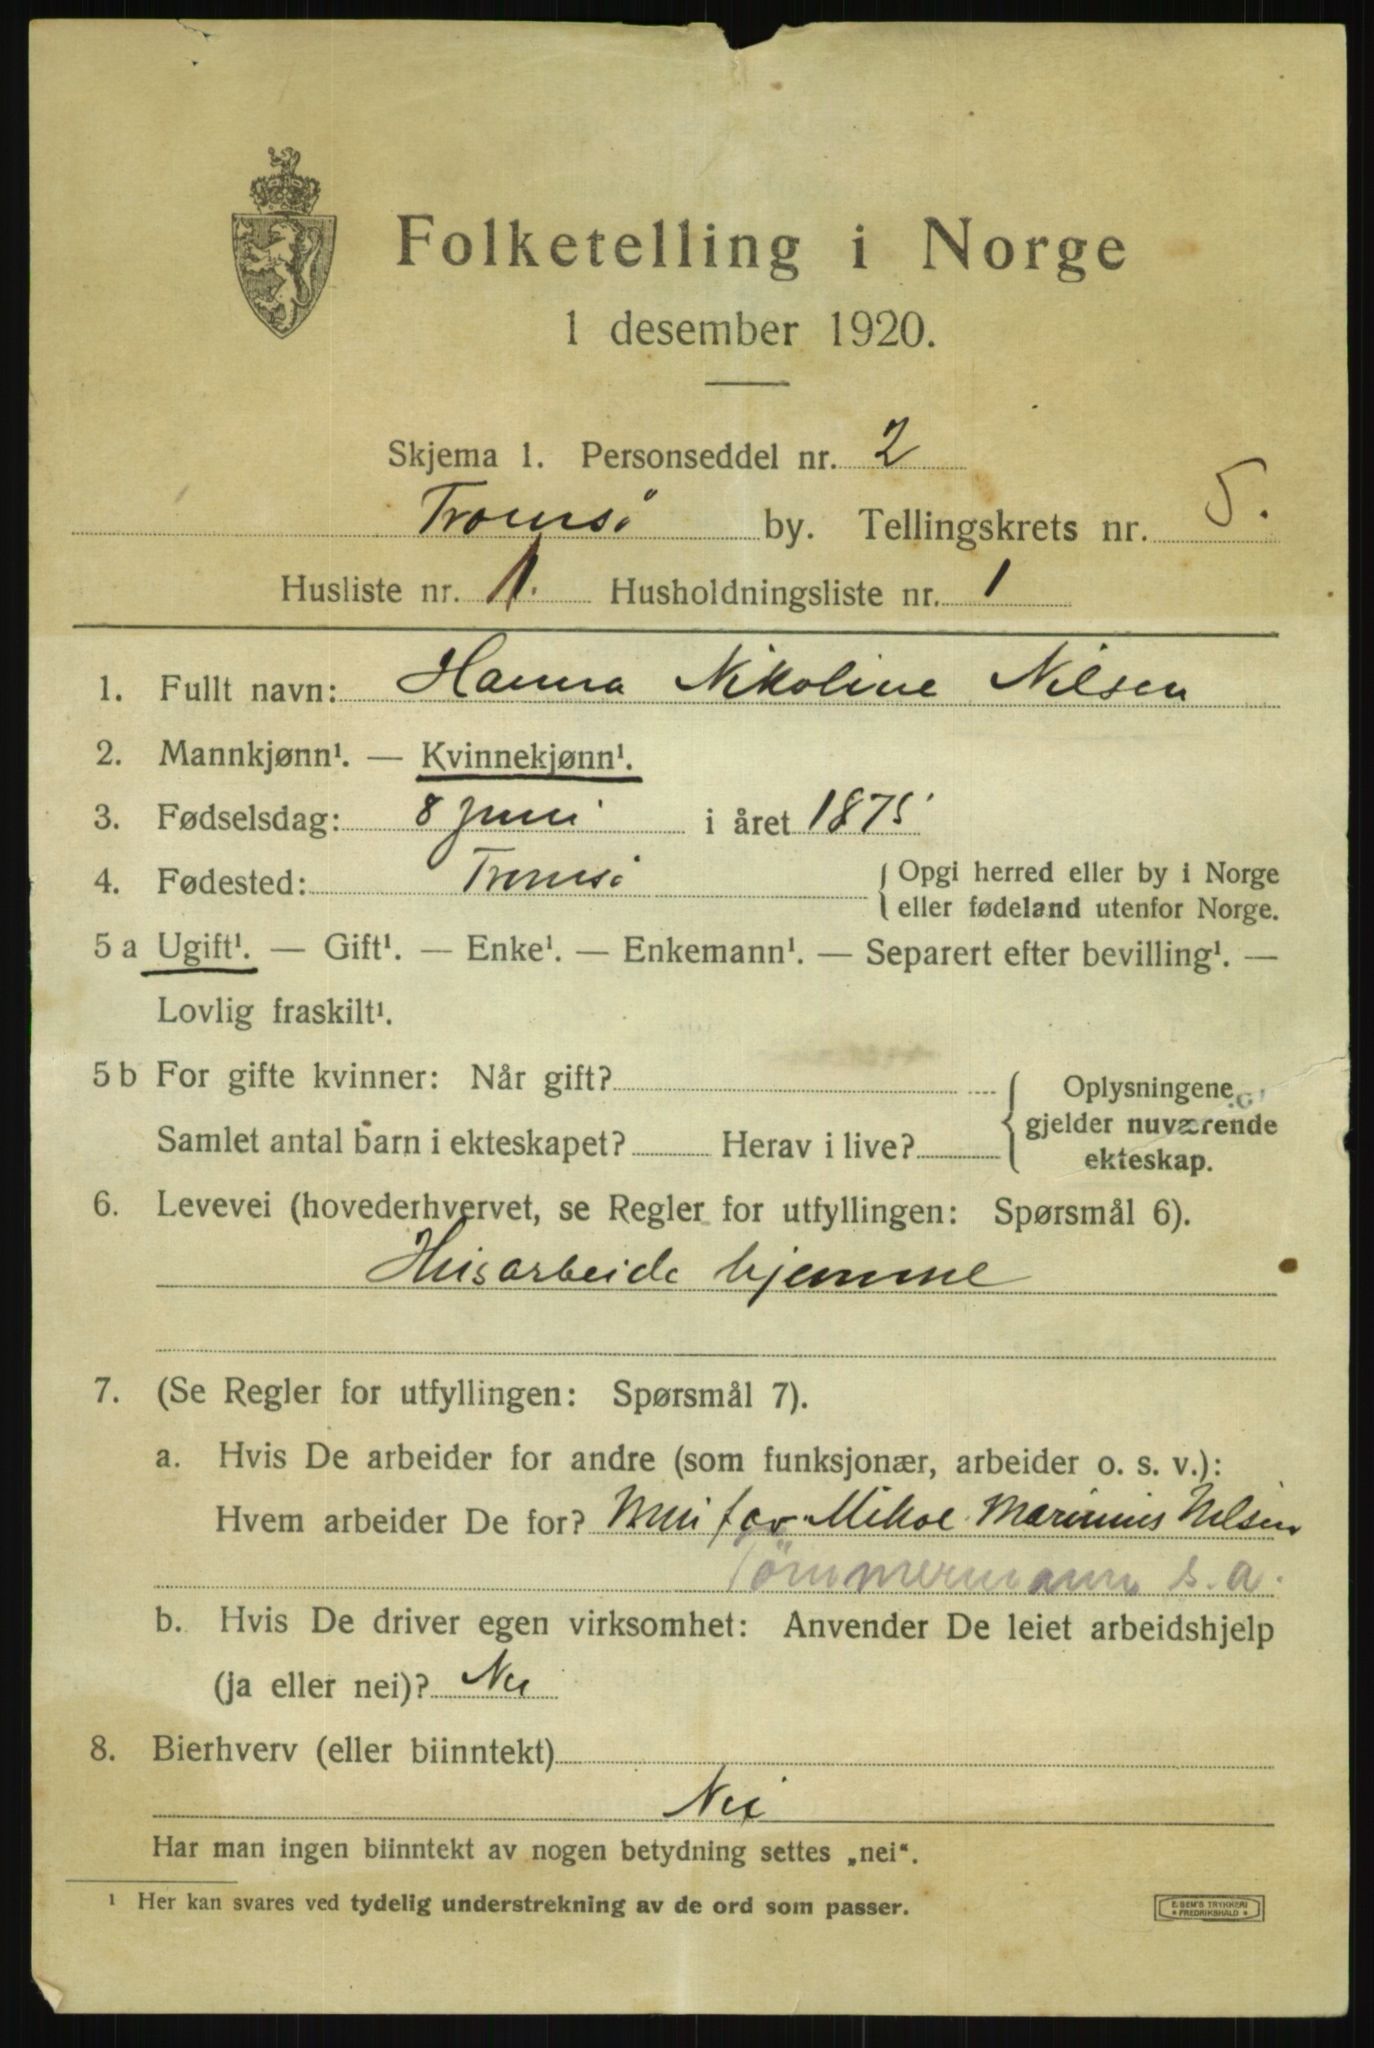 Folketelling i Norge
1 desember 1920.
Skjema 1. Personseddel nr. 2
Tromsö by. Tellingskrets nr. 5.
Husliste nr. 1. Husholdningsliste nr. 1
1. Fullt navn: Hanna Nikoline Nilsen
2. Mannkjønn¹. — Kvinnekjønn¹.
3. Fødselsdag: 8 juni i året 1875
4. Fødested: Tromsö { Opgi herred eller by i Norge
eller fødeland utenfor Norge.
5 a Ugift¹. — Gift¹. — Enke¹. — Enkemann¹. — Separert efter bevilling¹. —
Lovlig fraskilt¹.
5 b For gifte kvinner: Når gift? { Oplysningene
gjelder nuværende
Samlet antal barn i ekteskapet? Herav i live?
ekteskap.
6. Levevei (hovederhvervet, se Regler for utfyllingen: Spørsmål 6).
Husarbeide hjemme
7. (Se Regler for utfyllingen: Spørsmål 7).
a. Hvis De arbeider for andre (som funksjonær, arbeider o. s. v.):
Hvem arbeider De for? Min far Marinius Nilsen
Tömmermann s.a.
b. Hvis De driver egen virksomhet: Anvender De leiet arbeidshjelp
(ja eller nei)? Nei
8. Bierhverv (eller biinntekt)
Nei
Har man ingen biinntekt av nogen betydning settes „nei“.
¹ Her kan svares ved tydelig understrekning av de ord som passer.
E. SEM'S TRYKKERI
* FREDRIKSHALD *